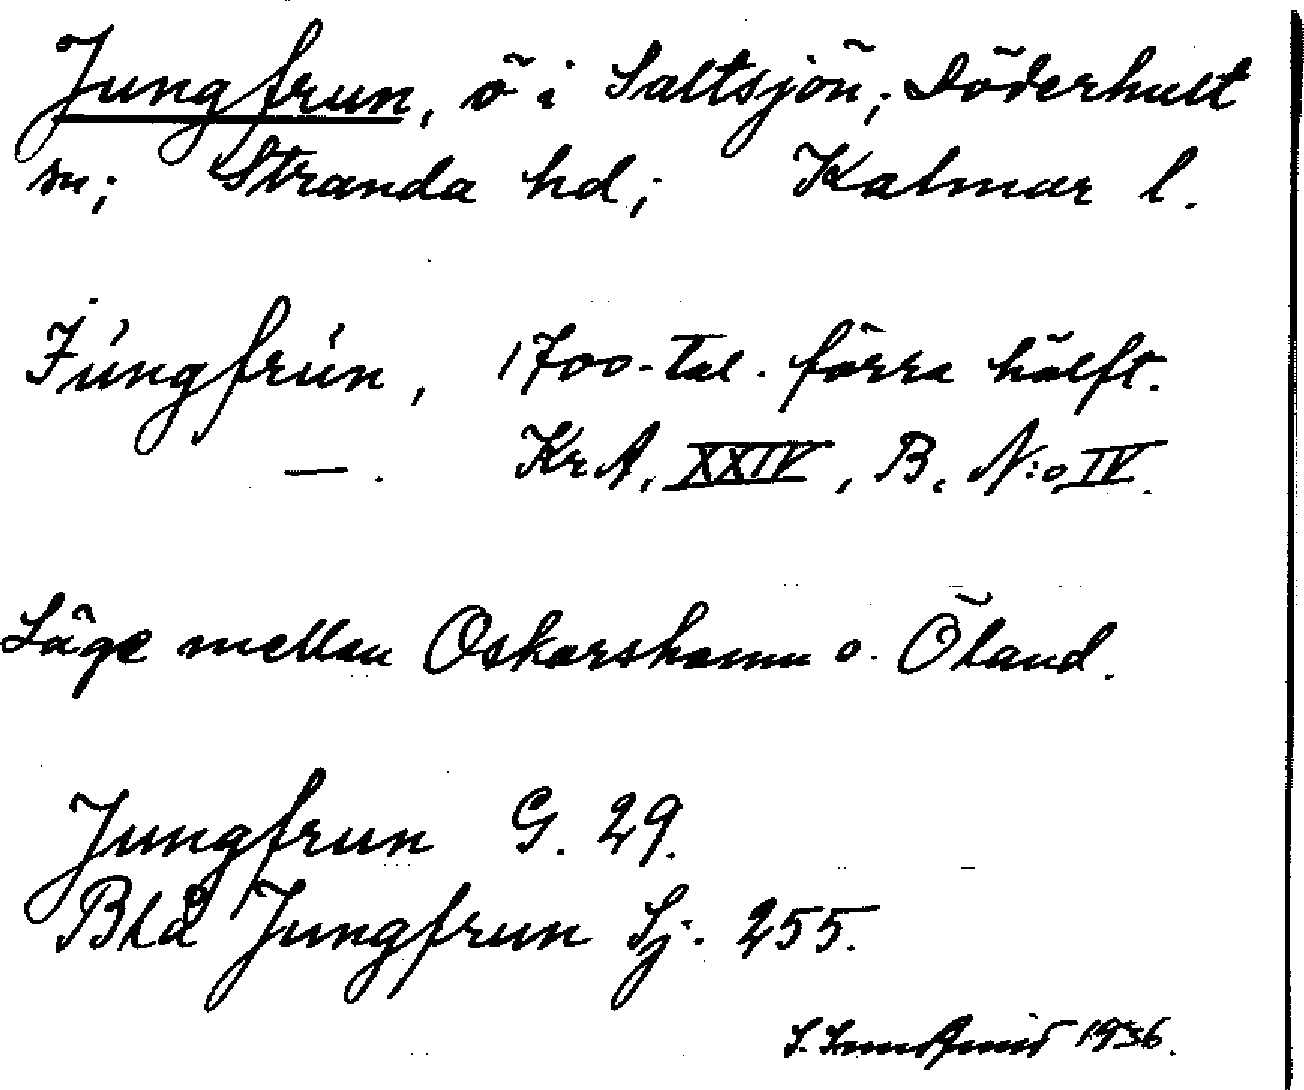 Jungfrun, ö i Saltsjön; Döderhult
sn; Stranda hd; Kalmar l.
Jungfrun, 1700-tal. förra hälft.
— . KrA, XXIV, B. N:o IV.
Läge mellan Oskarshamn o. Öland.
Jungfrun G. 29.
Blå Jungfrun Sj. 255.
1936.